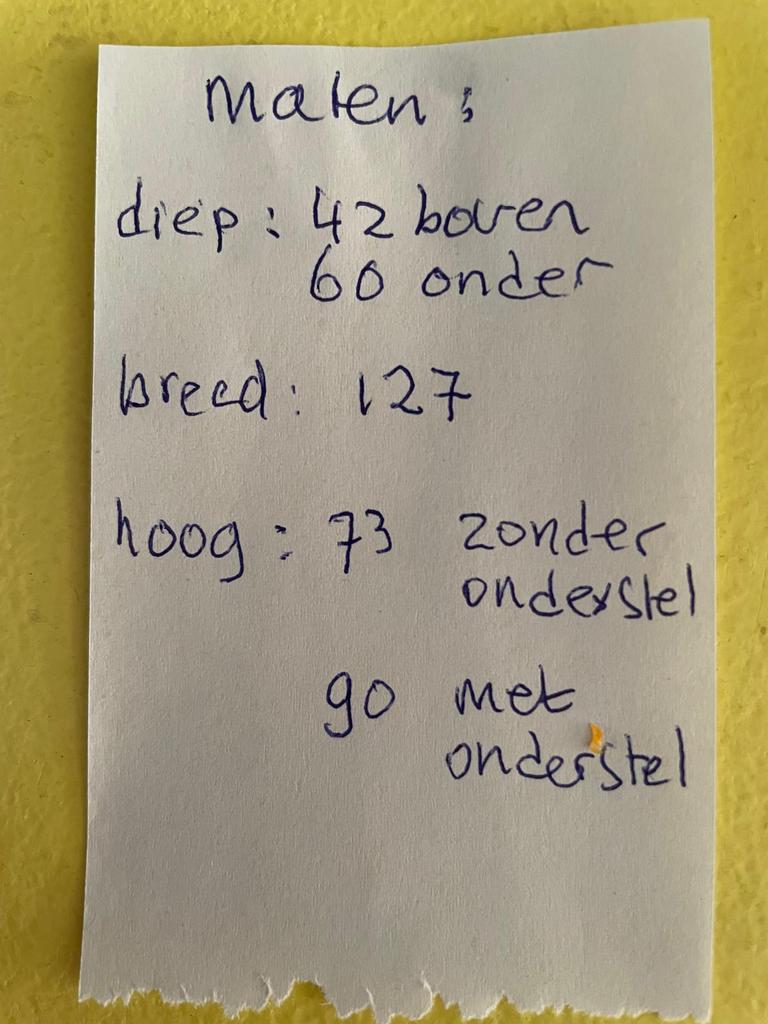 Maten:
diep: 42 boven
60 onder
breed: 127
hoog: 73 zonder
onderstel
90 met
onderstel